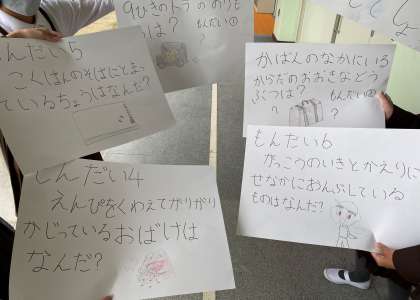 9ひきのトラ
のりも
は?
もんだい①
?
もんだい5
こくばんのそばにとまっ
ているちょうはなんだ?
かばんのなかにいる
からだのおおきなどう
ぶつは?
もんだい②
?
もんだい4
えんぴをくわえてがりがり
かじっているおばけは
なんだ?
もんだい6
がっこうのいきとかえりに
せなかにおんぶしている
ものはなんだ?